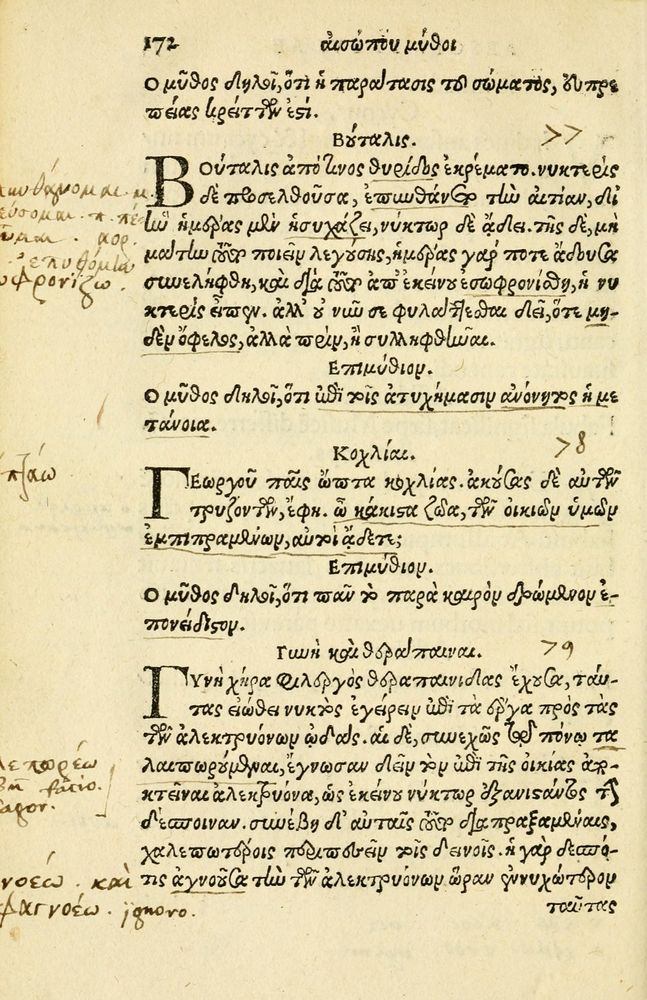 172 αἰσώπου μῦθοι
Ο μῦθος δηλοῖ, ὅτι ἡ παράτασις τοῦ σώματος, εὐπρε
πείας κρείττων ἐστί.
Βούταλις. 77
ΒΟύταλις ἀπό τινος θυρίδος ἐκρέματο. νυκτερὶς
δὲ προσελθοῦσα, ἐπυνθάνετο τὴν αἰτίαν, δι'
ἣν ἡμέρας μὲν ἡσυχάζει, νύκτωρ δὲ ᾄδει. τῆς δὲ, μὴ
μάτην τοῦτο ποιεῖν λεγούσης, ἡμέρας γάρ ποτε ᾄδουσα
συνελήφθη, καὶ διὰ τοῦτο ἀπ' ἐκείνου ἐσωφρονίσθη, ἡ νυ
κτερὶς εἶπεν. ἀλλ' οὐ νῦν σε φυλάττεσθαι δεῖ, ὅτε μη-
δὲν ὄφελος, ἀλλὰ πρὶν, ἢ συλληφθῆναι.
Επιμύθιον.
Ο μῦθος δηλοῖ, ὅτι ἐπὶ τοῖς ἀτυχήμασιν ἀνόνητος ἡ με
τάνοια.
Κοχλίαι. 78
ΓΕωργοῦ παῖς ὤπτα κοχλίας. ἀκούσας δὲ αὐτῶν
τρυζόντων, ἔφη. ὦ κάκιστα ζῶα, τῶν οἰκιῶν ὑμῶν
ἐμπιπραμένων, αὐτοὶ ᾄδετε;
Επιμύθιον.
Ο μῦθος δηλοῖ, ὅτι πᾶν τὸ παρὰ καιρὸν δρώμενον ἐ-
πονείδιστον.
Γυνὴ καὶ θεράπαιναι. 79
ΓΥνὴ χήρα φιλεργὸς θεραπαινίδας ἔχουσα, ταύ-
τας εἰώθει νυκτὸς ἐγείρειν ἐπὶ τὰ ἔργα πρὸς τὰς
τῶν ἀλεκτρυόνων ᾠδάς. αἱ δὲ, συνεχῶς τῷ πόνῳ τα
λαιπωρούμεναι, ἔγνωσαν δεῖν τὸν ἐπὶ τῆς οἰκίας ἀπ-
κτεῖναι ἀλεκτρυόνα, ὡς ἐκείνου νύκτωρ ἐξανιστάντος τὴν
δέσποιναν. συνέβη δ' αὐταῖς τοῦτο διαπραξαμέναις,
χαλεπωτέροις περιπεσεῖν τοῖς δεινοῖς. ἡ γὰρ δεσπό-
τις ἀγνοοῦσα τὴν τῶν ἀλεκτρυόνων ὥραν ἐννυχώτερον
ταύτας
σωφρονίζω.
νοέω. καὶ
ἀγνοέω. ignoro.